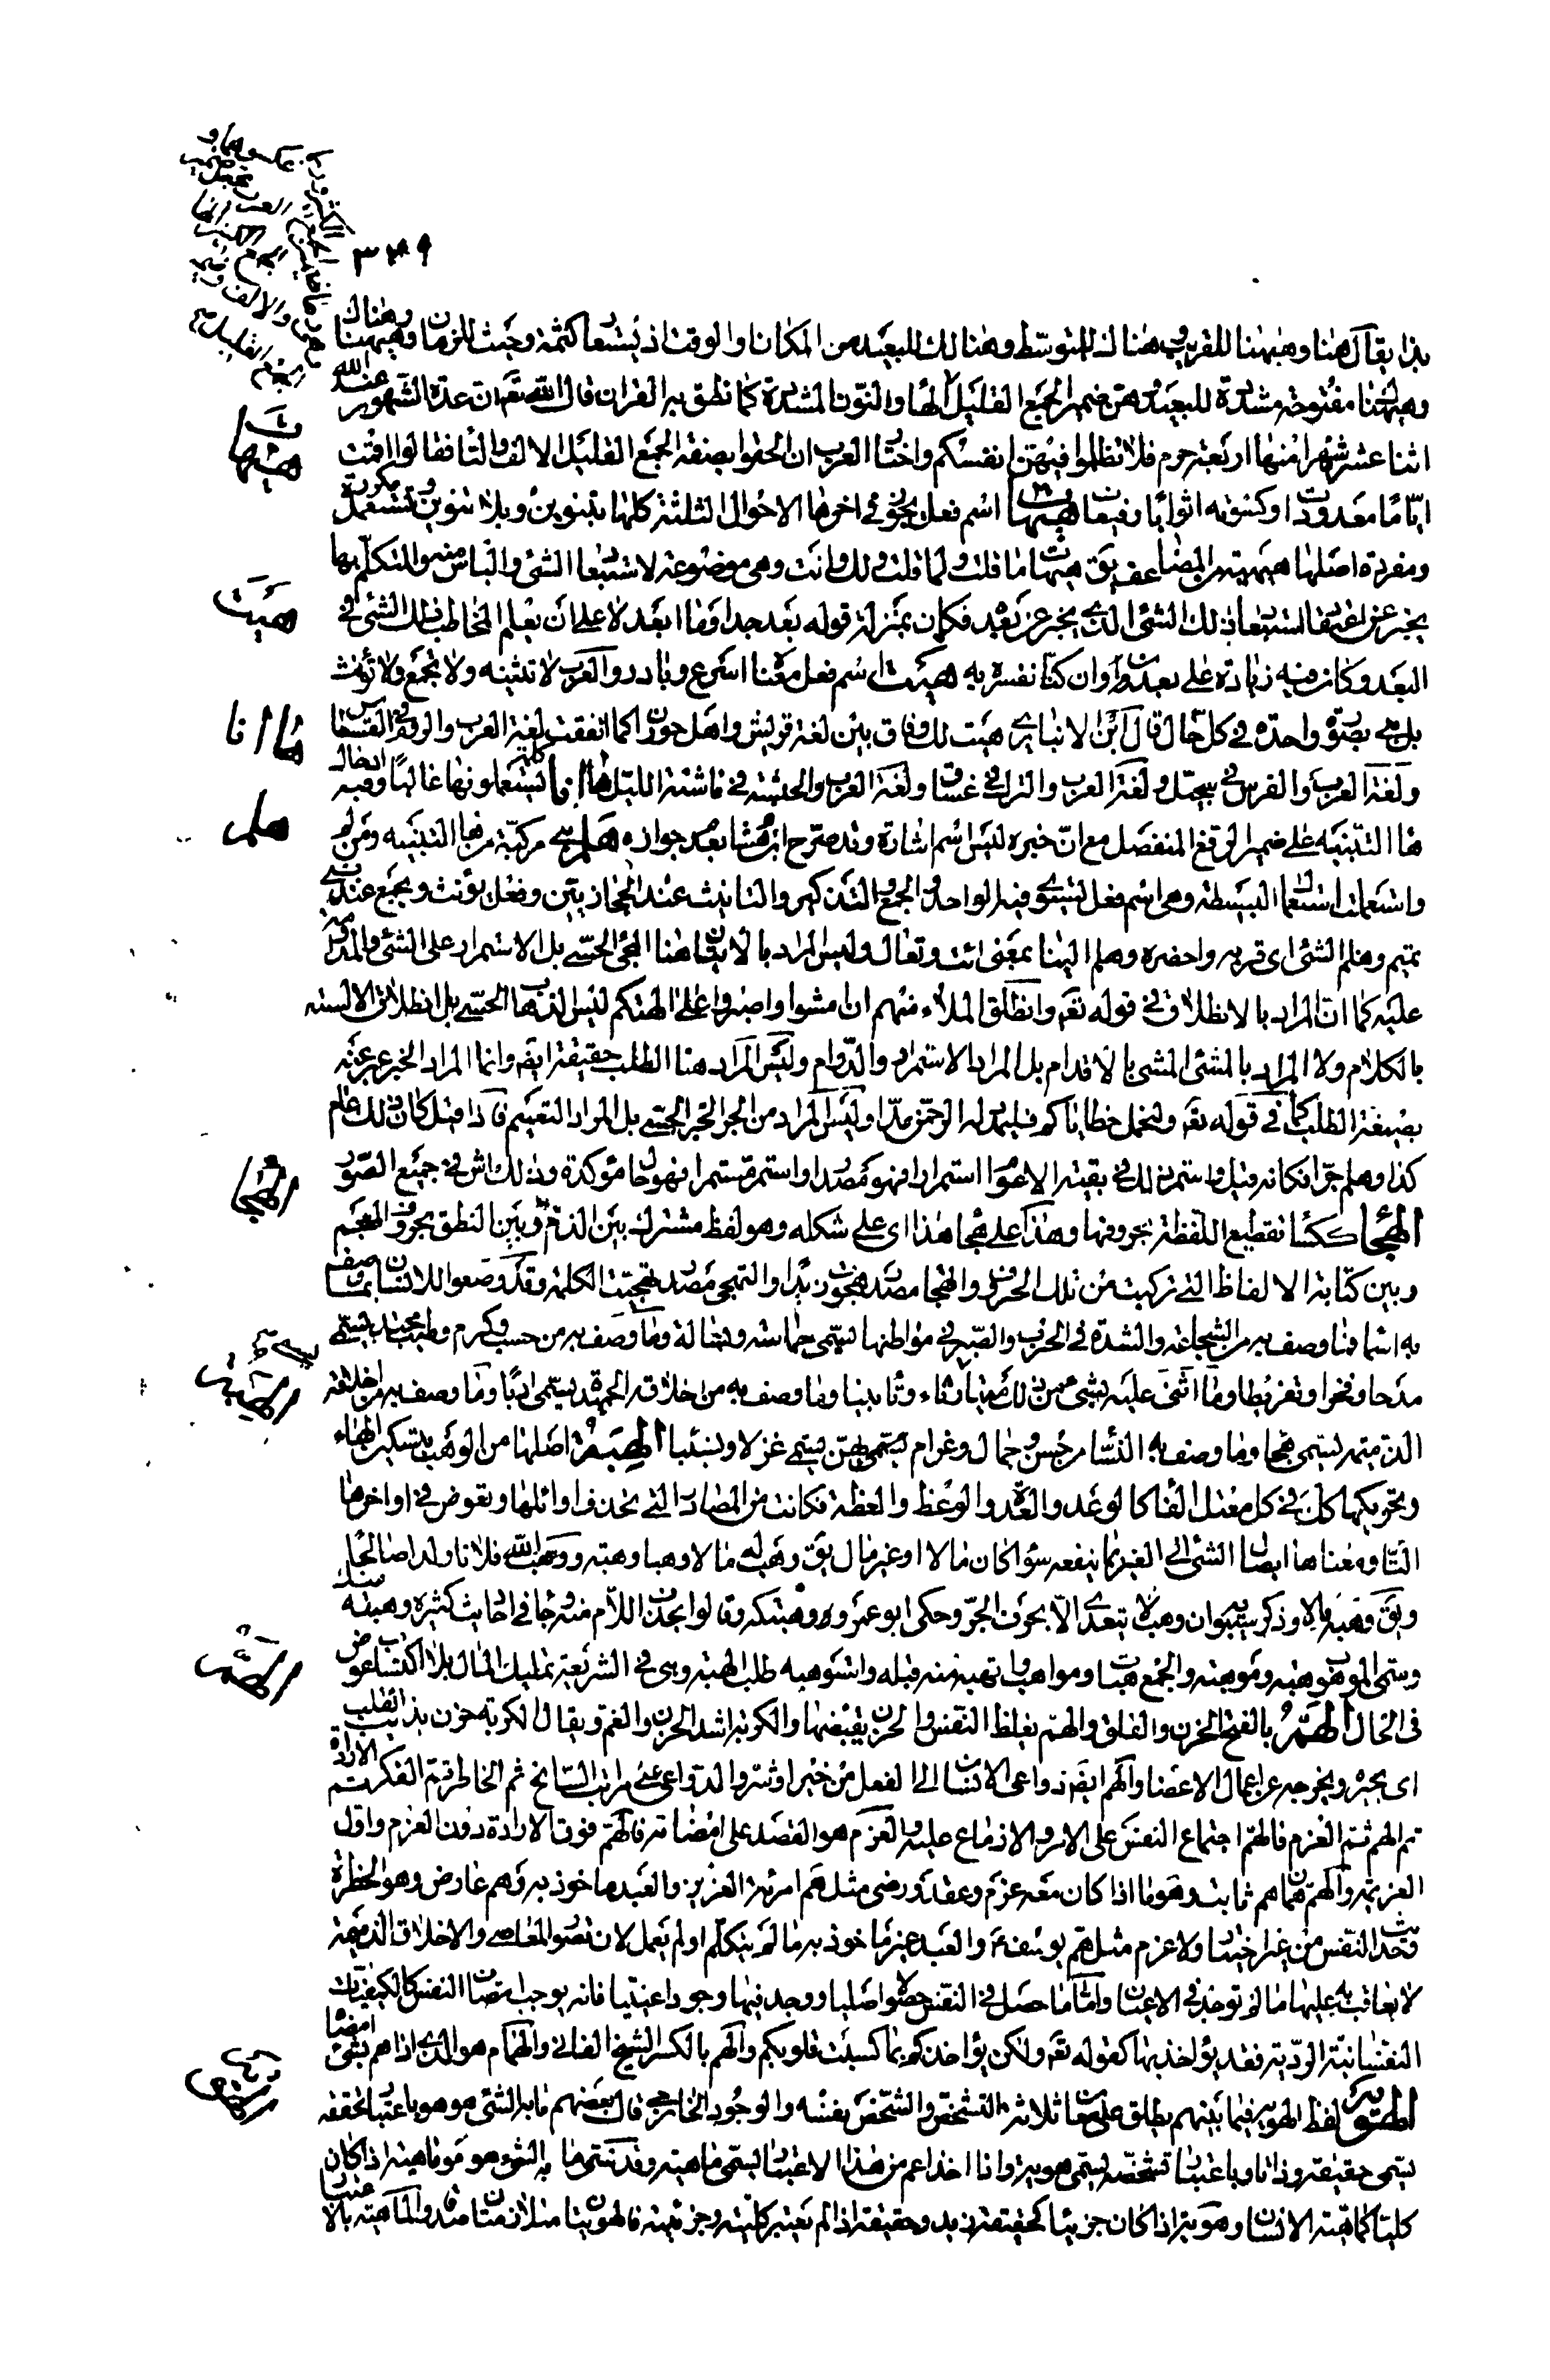 ٣٨٩
بذا يقال هنا وههنا للقريب وهناك للمتوسط وهنالك للبعيد من المكان والوقت اذ يستعار كثمة وحيث للزمان وههنا وهناك
وههنا مفتوحة مشددة للبعيد وهن ضمير الجمع القليل الها والنون المشددة كما نطق به القران قال الله تعم ان عدة الشهور عند الله
اثنا عشر شهرا منها اربعة حرم فلا تظلموا فيهن انفسكم واختار العرب ان الحقوا بصفة الجمع القليل الالف والتا فقالوا اقمت
اياما معدودات وكسوته اثوابا رفيعات هيهات اسم فعل يجوز في اخرها الاحوال الثلثة كلها بتنوين وبلا تنوين وتستعمل مكررة
ومفردة اصلها هيهية من المضاعف يق هيهات ما قلت ولما قلت ولك ولانت وهي موضوعة لاستبعاد الشئ والياس منه والمتكلم بها
يخبر عن اعتقاد استبعاد ذلك الشئ الذي يخبر عن بعده فكان بمنزلة قوله بعد جدا وما ابعد لا على ان يعلم المخاطب ذلك الشئ في
البعد وكان فيه زيادة على بعد وان كنا نفسره به هيت اسم فعل معناه اسرع وبادر والعرب لا تثنيه ولا تجمع ولا تؤنث
بل هي بصورة واحدة في كل حال قال ابن الانباري هيت لك وفاق بين لغة قريش واهل حوران كما اتفقت لغة العرب والروم في القسطاس
ولغة العرب والفرس في سجيل ولغة العرب والترك في غساق ولغة العرب والحبشة في ناشئة الليل ها انا كلمة يستعملونها غالبا وفيه ادخال
ها التنبيه على ضمير الرفع المنفصل مع ان خبره ليس اسم اشارة وقد صرح ابن هشام بعدم جوازه هلم هي مركبة من ها التنبيه ومن لم
واستعملت استعمال البسيطة وهي اسم فعل يستوي فيه الواحد والجمع والتذكير والتانيث عند الحجازيين وفعل يؤنث ويجمع عند بني
تميم وهلم الشئ اي قربه واحضره وهلم الينا بمعنى ائت وتعال وليس المراد بالاتيان هنا المجئ الحسي بل الاستمرار على الشئ والمداومة
عليه كما ان المراد بالانطلاق في قوله تعم وانطلق الملاء منهم ان امشوا واصبروا على الهتكم ليس الذهاب الحسي بل انطلاق الالسنه
بالكلام ولا المراد بالمشي المشي بالاقدام بل المراد الاستمرار والدوام وليس المراد هنا الطلب حقيقة ايضا وانما المراد الخبر عبر عنه
بصيغة الطلب كما في قوله تعم ولنحمل خطاياكم فليمدد له الرحمن مدا وليس المراد من الجر الجر الحسي بل المراد التعميم فاذا قيل كان ذلك عام
كذا وهلم جرا فكانه قيل واستمر ذلك في بقية الاعوام استمرارا فهو مصدر او استمر مستمرا فهو حال مؤكدة وذلك ماش في جميع الصور
الهجا ككسا تقطيع اللفظة بحروفها وهذا على هجا هذا اي على شكله وهو لفظ مشترك بين الذم وبين النطق بحروف المعجم
وبين كتابة الالفاظ التي تركبت من تلك الحروف والهجا مصدر هجوت زيدا والتهجي مصدر تهجيت الكلمة وقد وضعوا للانسان بما وصف
به اسما فما وصف به من الشجاعة والشدة في الحرب والصبر في مواطنها يسمى حماسة وبسالة وما وصف به من حسب وكرم وطيب محتد يسمى
مدحا وفخرا وتقريظا وما اثني عليه بشئ من ذلك ميتا رثاء وتابينا وما وصف به من اخلاقه الحميدة يسمى ادبا وما وصف به من اخلاقه
الذميمة يسمى هجا وما وصف به النسا من حسن وجمال وغرام بهن يسمى غزلا ونسيبا الهبة اصلها من الوهب بتسكين الهاء
وتحريكها كذا في كل معتل الفا كالوعد والعدة والوعظ والعظة فكانت من المصادر التي يحذف اوائلها ويعوض في اواخرها
التا ومعناها ايصال الشئ الى الغير بما ينفعه سواء كان مالا او غير مال يق وهب له مالا وهبا وهبة ووهب الله فلانا ولدا صالحا
ويق وهبه مالا وذكر سيبويه ان وهب لا يتعدى الا بحرف الجر وحكى ابو عمرو وهبتكه وقالوا بحذف اللام منه وجا في احاديث كثيرة وهبته منك
وسمي الموهوب هبة وموهبة والجمع هبات ومواهب واتهبه منه قبله واستوهبه طلب الهبة وهي في الشريعة تمليك المال بلا اكتساب عوض
في الحال الهم بالفتح الحزن والقلق والهم يغلظ النفس والحزن يقبضها والكربة اشد الحزن والغم ويقال الكربة حزن يذيب القلب
اي يحيره ويخرجه عن اعمال الاعضا والهم ايضا دواعي الانسان الى الفعل من خير او شر والدواعي على مراتب السانح ثم الخاطر ثم الفكر ثم الارادة
ثم الهم ثم العزم فالهم اجتماع النفس على الامر والازماع عليه والعزم هو القصد على امضائه فالهم فوق الارادة دون العزم واول
العزيمة والهم همان هم ثابت وهو ما اذا كان معه عزم وعقد ورضى مثل هم امرءة العزيز والعبد ماخوذ به وهم عارض وهو الخطرة
وحديث النفس من غير اختيار ولا عزم مثل هم يوسف ع والعبد غير ماخوذ به ما لم يتكلم او لم يعمل لان تصور المعاصي والاخلاق الذميمة
لا يعاقب به عليها ما لم توجد في الاعيان واما ما حصل في النفس حصولا اصليا ووجد فيها وجودا عينيا فانه يوجب اتصاف النفس كالكيفيات
النفسانية الردية فقد يؤاخذ بها كقوله تعم ولكن يؤاخذكم بما كسبت قلوبكم والهم بالكسر الشيخ الفاني والهمام هو الذي اذا هم بشئ امضاه
الهوية لفظ الهوية فيما بينهم يطلق على معان ثلاثة التشخص والشخص نفسه والوجود الخارجي قال بعضهم ما به الشئ هو هو باعتبار تحققه
يسمى حقيقة وذاتا وباعتبار تشخصه يسمى هوية واذا اخذ اعم من هذا الاعتبار يسمى ماهية وقد يسمى ما به الشئ هو هو ماهية اذا كان
كليا كماهية الانسان وهوية اذا كان جزئيا كحقيقة زيد وحقيقة اذا لم يعتبر كليته وجزئيته فالهويتان متلازمتان صدقا والماهية بالاعتبار
هيهات
هيت
ها انا
هلم
الهجا
الهبة
الهم
الهوية